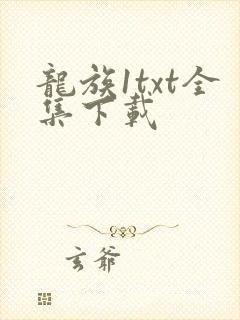 龍族1txt全
集下載
玄爺